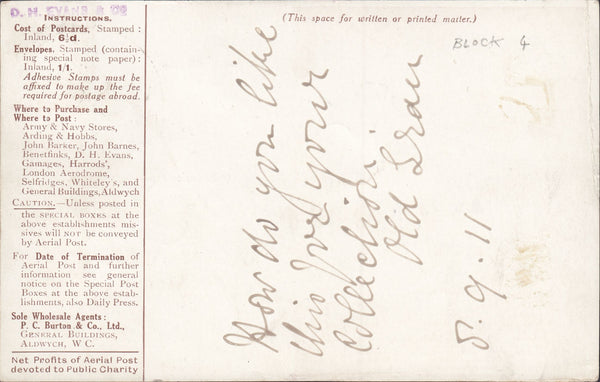 D. H. EVANS & Co
INSTRUCTIONS.
Cost of Postcards, Stamped :
Inland, 6½d.
Envelopes. Stamped (contain-
ing special note paper):
Inland, 1/1.
Adhesive Stamps must be
affixed to make up the fee
required for postage abroad.
Where to Purchase and
Where to Post :
Army & Navy Stores,
Arding & Hobbs,
John Barker, John Barnes,
Benetfinks, D. H. Evans,
Gamages, Harrods',
London Aerodrome,
Selfridges, Whiteley's, and
General Buildings, Aldwych
CAUTION.—Unless posted in
the SPECIAL BOXES at the
above establishments mis-
sives will NOT be conveyed
by Aerial Post.
For Date of Termination of
Aerial Post and further
information see general
notice on the Special Post
Boxes at the above estab-
lishments, also Daily Press.
Sole Wholesale Agents :
P. C. Burton & Co., Ltd.,
GENERAL BUILDINGS,
ALDWYCH, W C.
Net Profits of Aerial Post
devoted to Public Charity
(This space for written or printed matter.)
BLOCK 4
How do you like
this for your
collection.
Old Bean
8.9.11